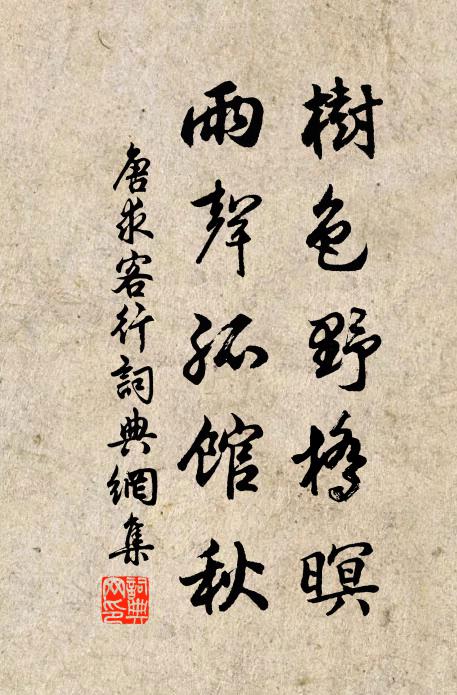 樹色野橋暝
雨聲孤館秋
唐求客行詞典網集
詞典
网印